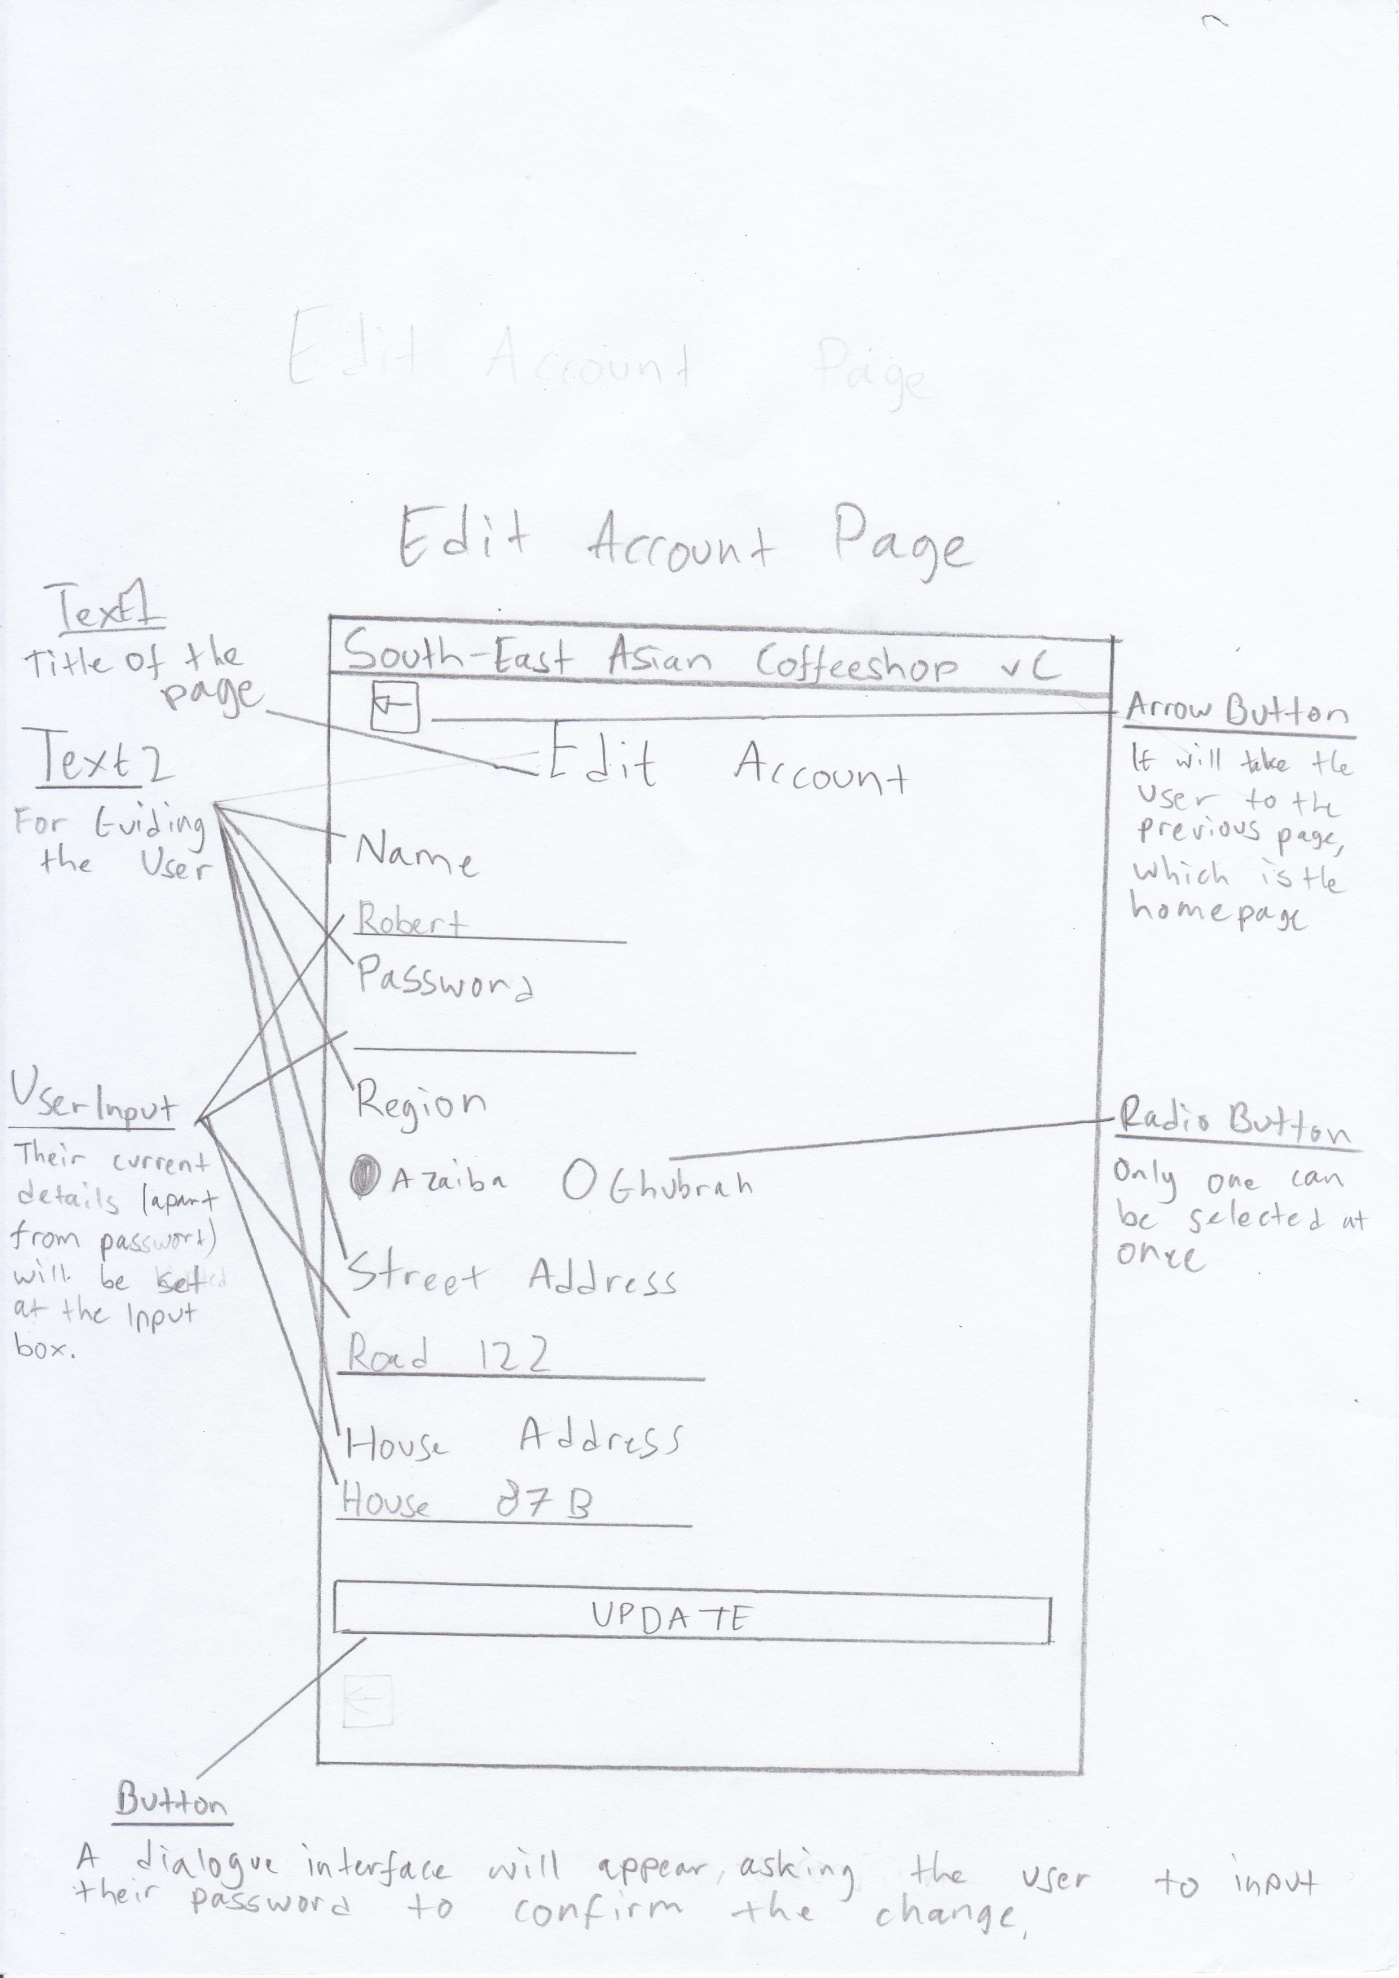 Edit Account Page
Edit Account Page
Text1
Title of the
page
Text 2
For Guiding
the User
User Input
Their current
details (apart
from password)
will be set
at the Input
box.
South-East Asian Coffeeshop vC
←
Edit Account
Name
Robert
Password
Region
Azaiba Ghubrah
Street Address
Road 122
House Address
House 87B
UPDATE
Arrow Button
It will take the
user to the
previous page,
which is the
homepage
Radio Button
Only one can
be selected at
once
Button
A dialogue interface will appear, asking the user to input
their password to confirm the change.